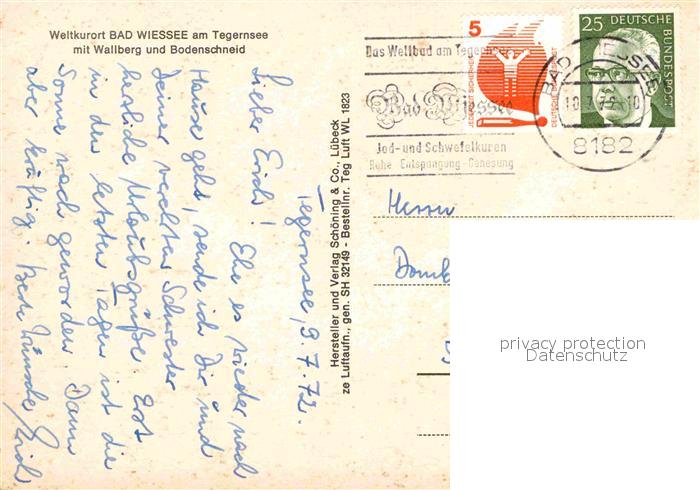 Weltkurort BAD WIESSEE am Tegernsee
mit Wallberg und Bodenschneid
Tegernsee, 9.7.72.
Lieber Erich! Ehe es wieder nach
Hause geht, sende ich Dir und
Deiner Schwester
herzliche Urlaubsgrüße. Erst
in den letzten Tagen ist die
Sonne wach geworden. Dann
aber kräftig. Beste Wünsche
Hersteller und Verlag Schöning & Co., Lübeck
ze Luftaufn., gen. SH 32149 - Bestellnr. Teg Luft WL 1823
Das Weltbad am Tegernsee
Bad Wiessee
Jod- und Schwefelkuren
Ruhe - Entspannung - Genesung
5
JEDERZEIT SICHERHEIT
DEUTSCHE BUNDESPOST
25 DEUTSCHE
BUNDESPOST
BAD WIESSEE
8182
Herrn
privacy protection
Datenschutz